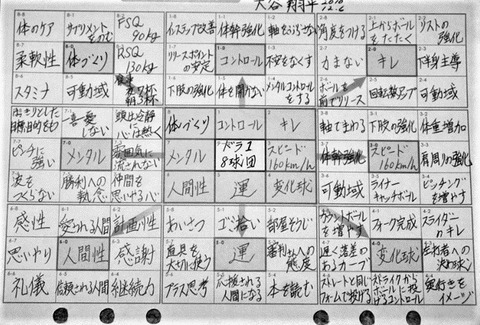 大谷 翔平
体のケア
サプリメントをのむ
FSQ 90kg
インステップ改善
体幹強化
軸をぶらさない
角度をつける
上からボールをたたく
リストの強化
柔軟性
体づくり
RSQ 130kg
リリースポイントの安定
コントロール
不安をなくす
力まない
キレ
下半身主導
スタミナ
可動域
食事 夜7杯 朝3杯
下肢の強化
体を開かない
メンタルコントロールをする
ボールを前でリリース
回転数アップ
可動域
一喜一憂しない
頭は冷静に心は熱く
体づくり
コントロール
キレ
軸でまわる
下肢の強化
体重増加
ピンチに強い
メンタル
雰囲気に流されない
メンタル
ドラ1 8球団
スピード 160km/h
体幹強化
スピード 160km/h
肩周りの強化
波をつくらない
勝利への執念
仲間を思いやる心
人間性
運
変化球
可動域
ライナーキャッチボール
ピッチングを増やす
感性
愛される人間
計画性
あいさつ
ゴミ拾い
部屋そうじ
カウントボールを増やす
フォーク完成
スライダーのキレ
思いやり
人間性
感謝
道具を大切に使う
運
審判さんへの態度
遅く落差のあるカーブ
変化球
左打者への決め球
礼儀
信頼される人間
継続力
プラス思考
応援される人間になる
本を読む
ストレートと同じフォームで投げる
ストライクからボールに投げるコントロール
奥行きをイメージ